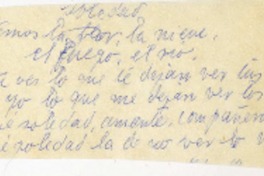 soledad
vemos la flor, la nieve,
el fuego, el río,
ves lo que te dejan ver tus
yo lo que me dejan ver los
qué soledad, amante, compañera
soledad la de no ver lo